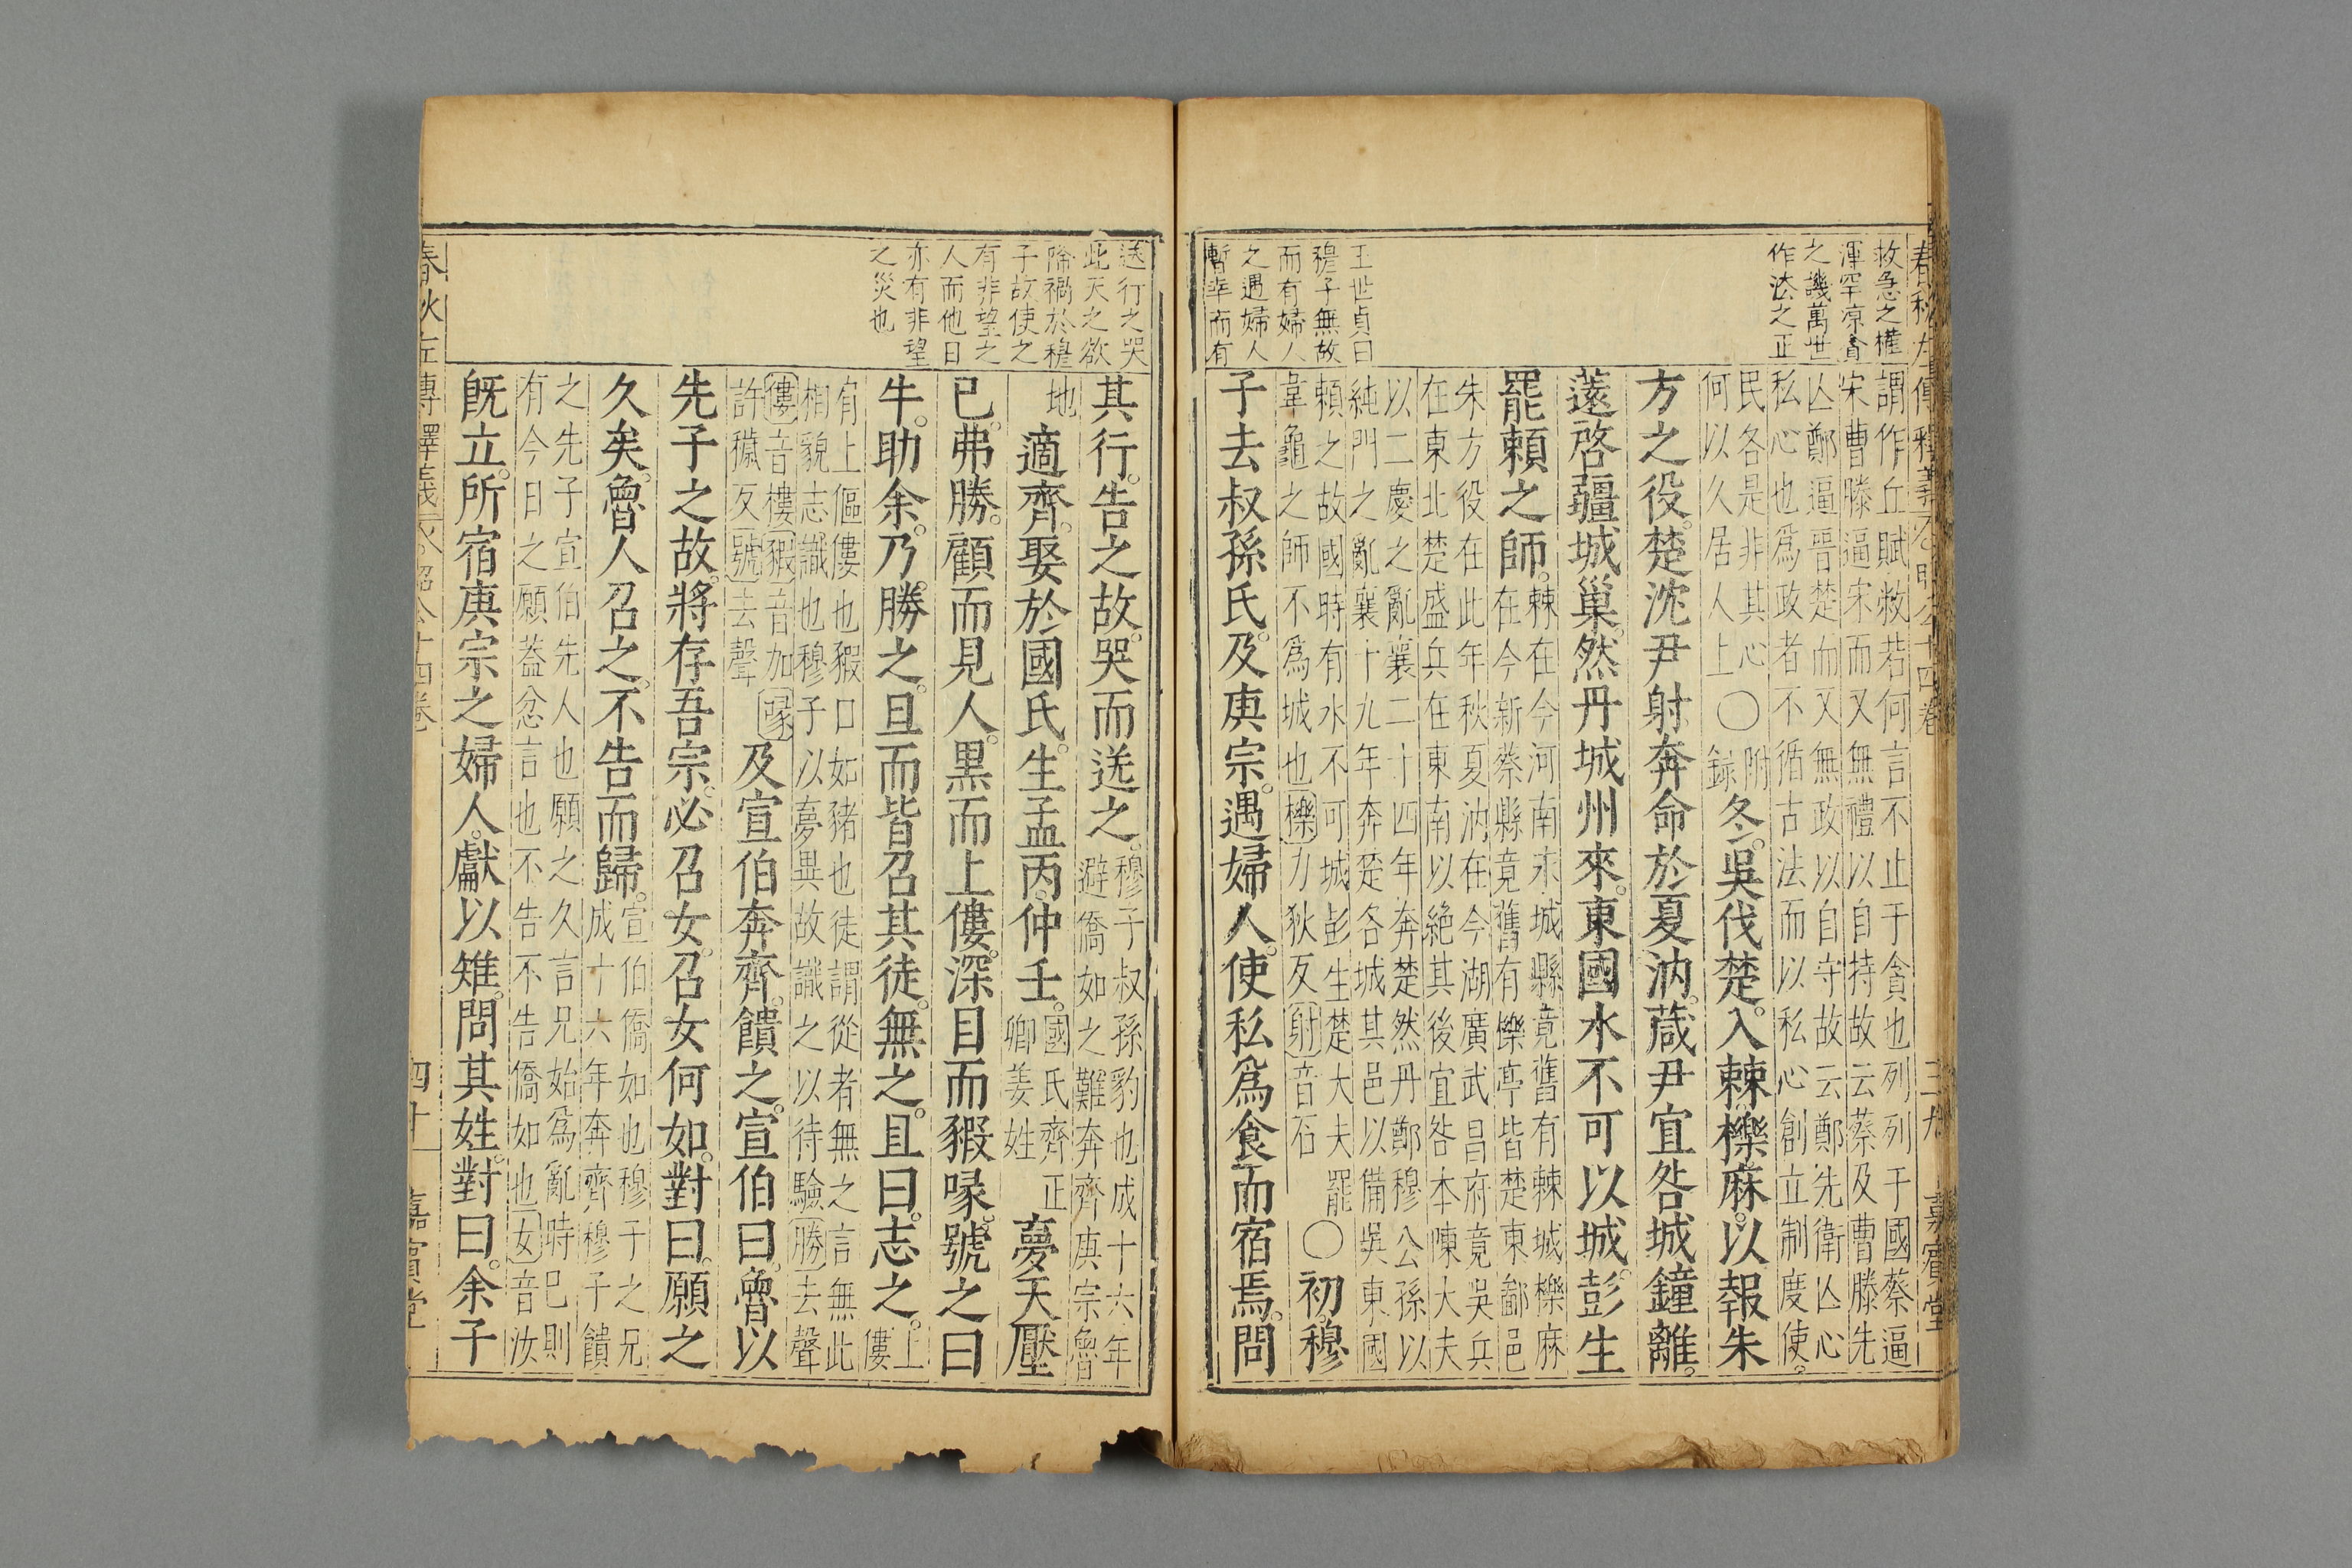 救急之權
渾罕凉貪
之譏萬世
作法之正
王世貞曰
穆子無故
而有婦人
之遇婦人
而有
謂作丘賦救若何言不止于貪也列列于國蔡逼
宋曹滕逼宋而又無禮以自持故云蔡及曹滕先
亾鄭逼晉楚而又無政以自守故云鄭先衛亾心
私心也爲政者不循古法而以私心創立制度使
民各是非其心
何以久居人上
〇附錄冬。吳伐楚。入棘櫟麻。以報朱
方之役。楚沈尹射奔命於夏汭。葴尹宜咎城鐘離。
薳啓疆城巢。然丹城州來。東國水不可以城。彭生
罷賴之師。
棘在今河南永城縣竟舊有棘城櫟麻
在今新蔡縣竟舊有櫟亭皆楚東鄙邑
朱方役在此年秋夏汭在今湖廣武昌府竟吳兵
在東北楚盛兵在東南以絕其後宜咎本陳大夫
以二慶之亂襄二十四年奔楚然丹鄭穆公孫以
純門之亂襄十九年奔楚各城其邑以備吳東國
賴之故國時有水不可城彭生楚大夫罷
韋龜之師不爲城也櫟力狄反射音石
〇初。穆
子去叔孫氏。及庚宗。遇婦人。使私爲食而宿焉。問
送行之哭
此天之欲
降禍於穆
子故使之
有非望之
人而他日
亦有非望
之災也
其行。告之故。哭而送之。
穆子叔孫豹也成十六年
避僑如之難奔齊庚宗魯
地
適齊。娶於國氏。生孟丙。仲壬。
國氏齊正
卿姜姓
夢天壓
已。弗勝。顧而見人。黑而上僂。深目而豭喙。號之曰
牛。助余。乃勝之。旦而皆召其徒。無之。且曰。志之。
上
僂
肩上傴僂也豭口如豬也徒謂從者無之言無此
相貌志識也穆子以夢異故識之以待驗勝去聲
僂音樓豭音加喙
許穢反號去聲
及宣伯奔齊。饋之。宣伯曰。魯以
先子之故。將存吾宗。必召女。召女何如。對曰。願之
久矣。魯人召之。不告而歸。
宣伯僑如也穆子之兄
成十六年奔齊穆子饋
之先子宣伯先人也願之久言兄始爲亂時已則
有今日之願葢忿言也不告不告僑如也女音汝
旣立。所宿庚宗之婦人。獻以雉。問其姓。對曰。余子